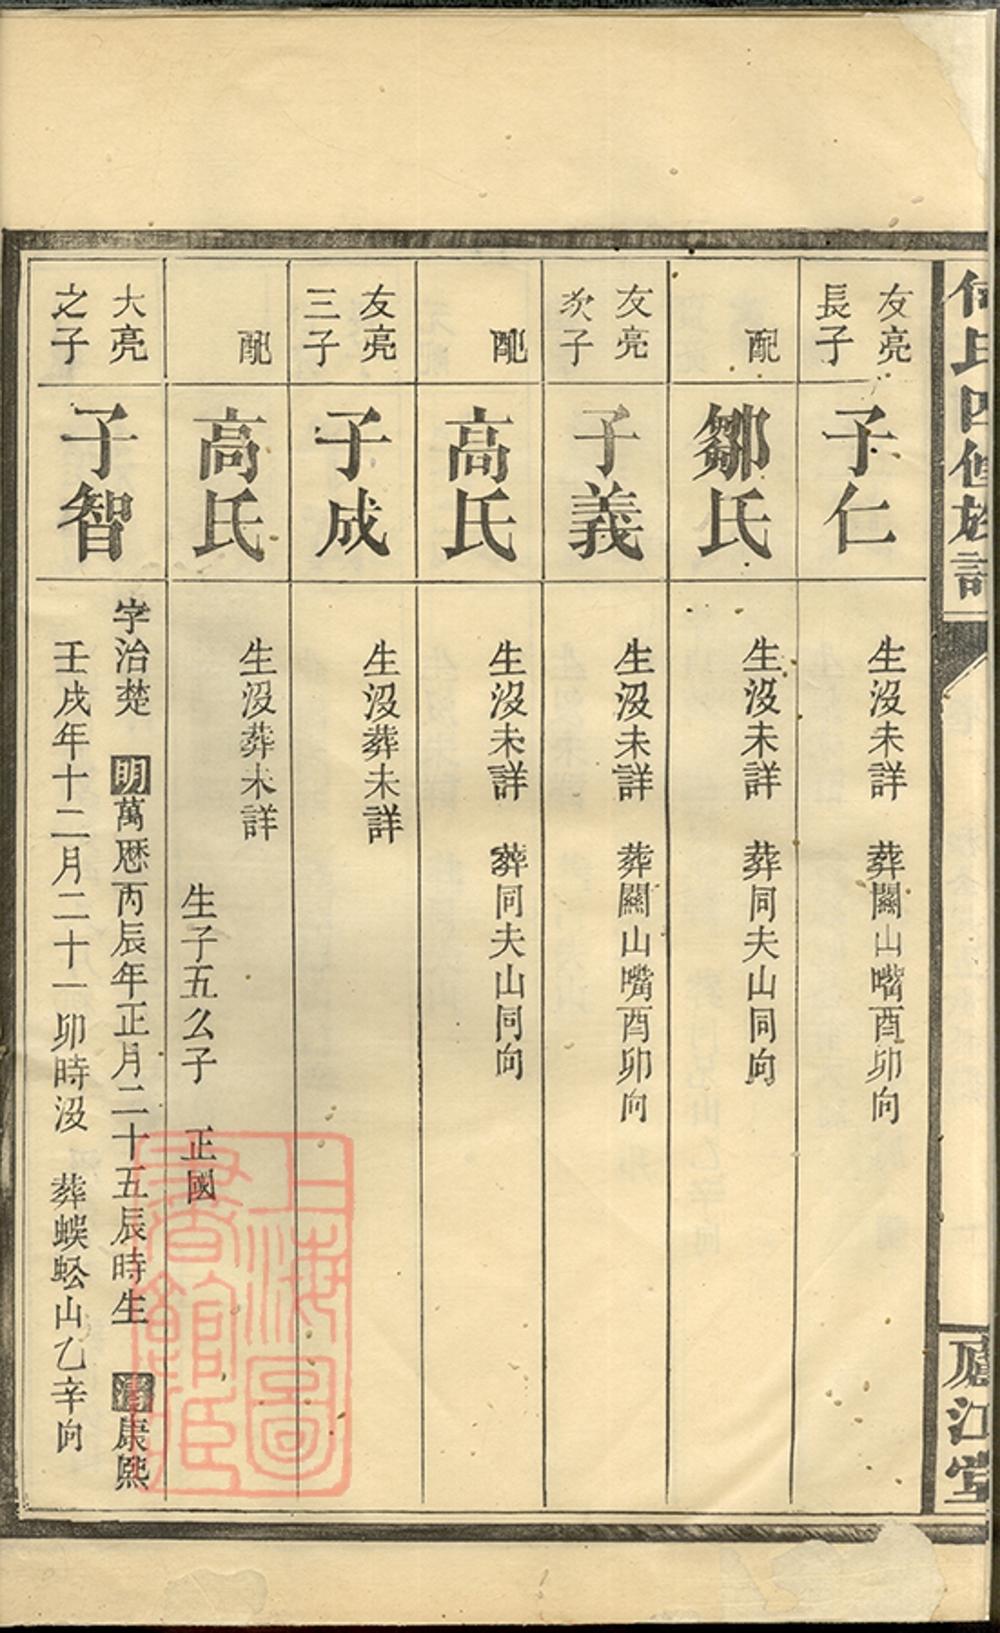 何氏四修族譜
廬江堂
友亮
長子
子仁
生沒未詳　葬關山嘴酉卯向
配
鄒氏
生沒未詳　葬同夫山同向
友亮
次子
子義
生沒未詳　葬關山嘴酉卯向
配
高氏
生沒未詳　葬同夫山同向
友亮
三子
子成
生沒葬未詳
配
高氏
生沒葬未詳
生子五么子　正國
大亮
之子
子智
字治楚　明萬厯丙辰年正月二十五辰時生　清康熙
壬戌年十二月二十一卯時沒　葬蜈蚣山乙辛向
上海圖
書館藏